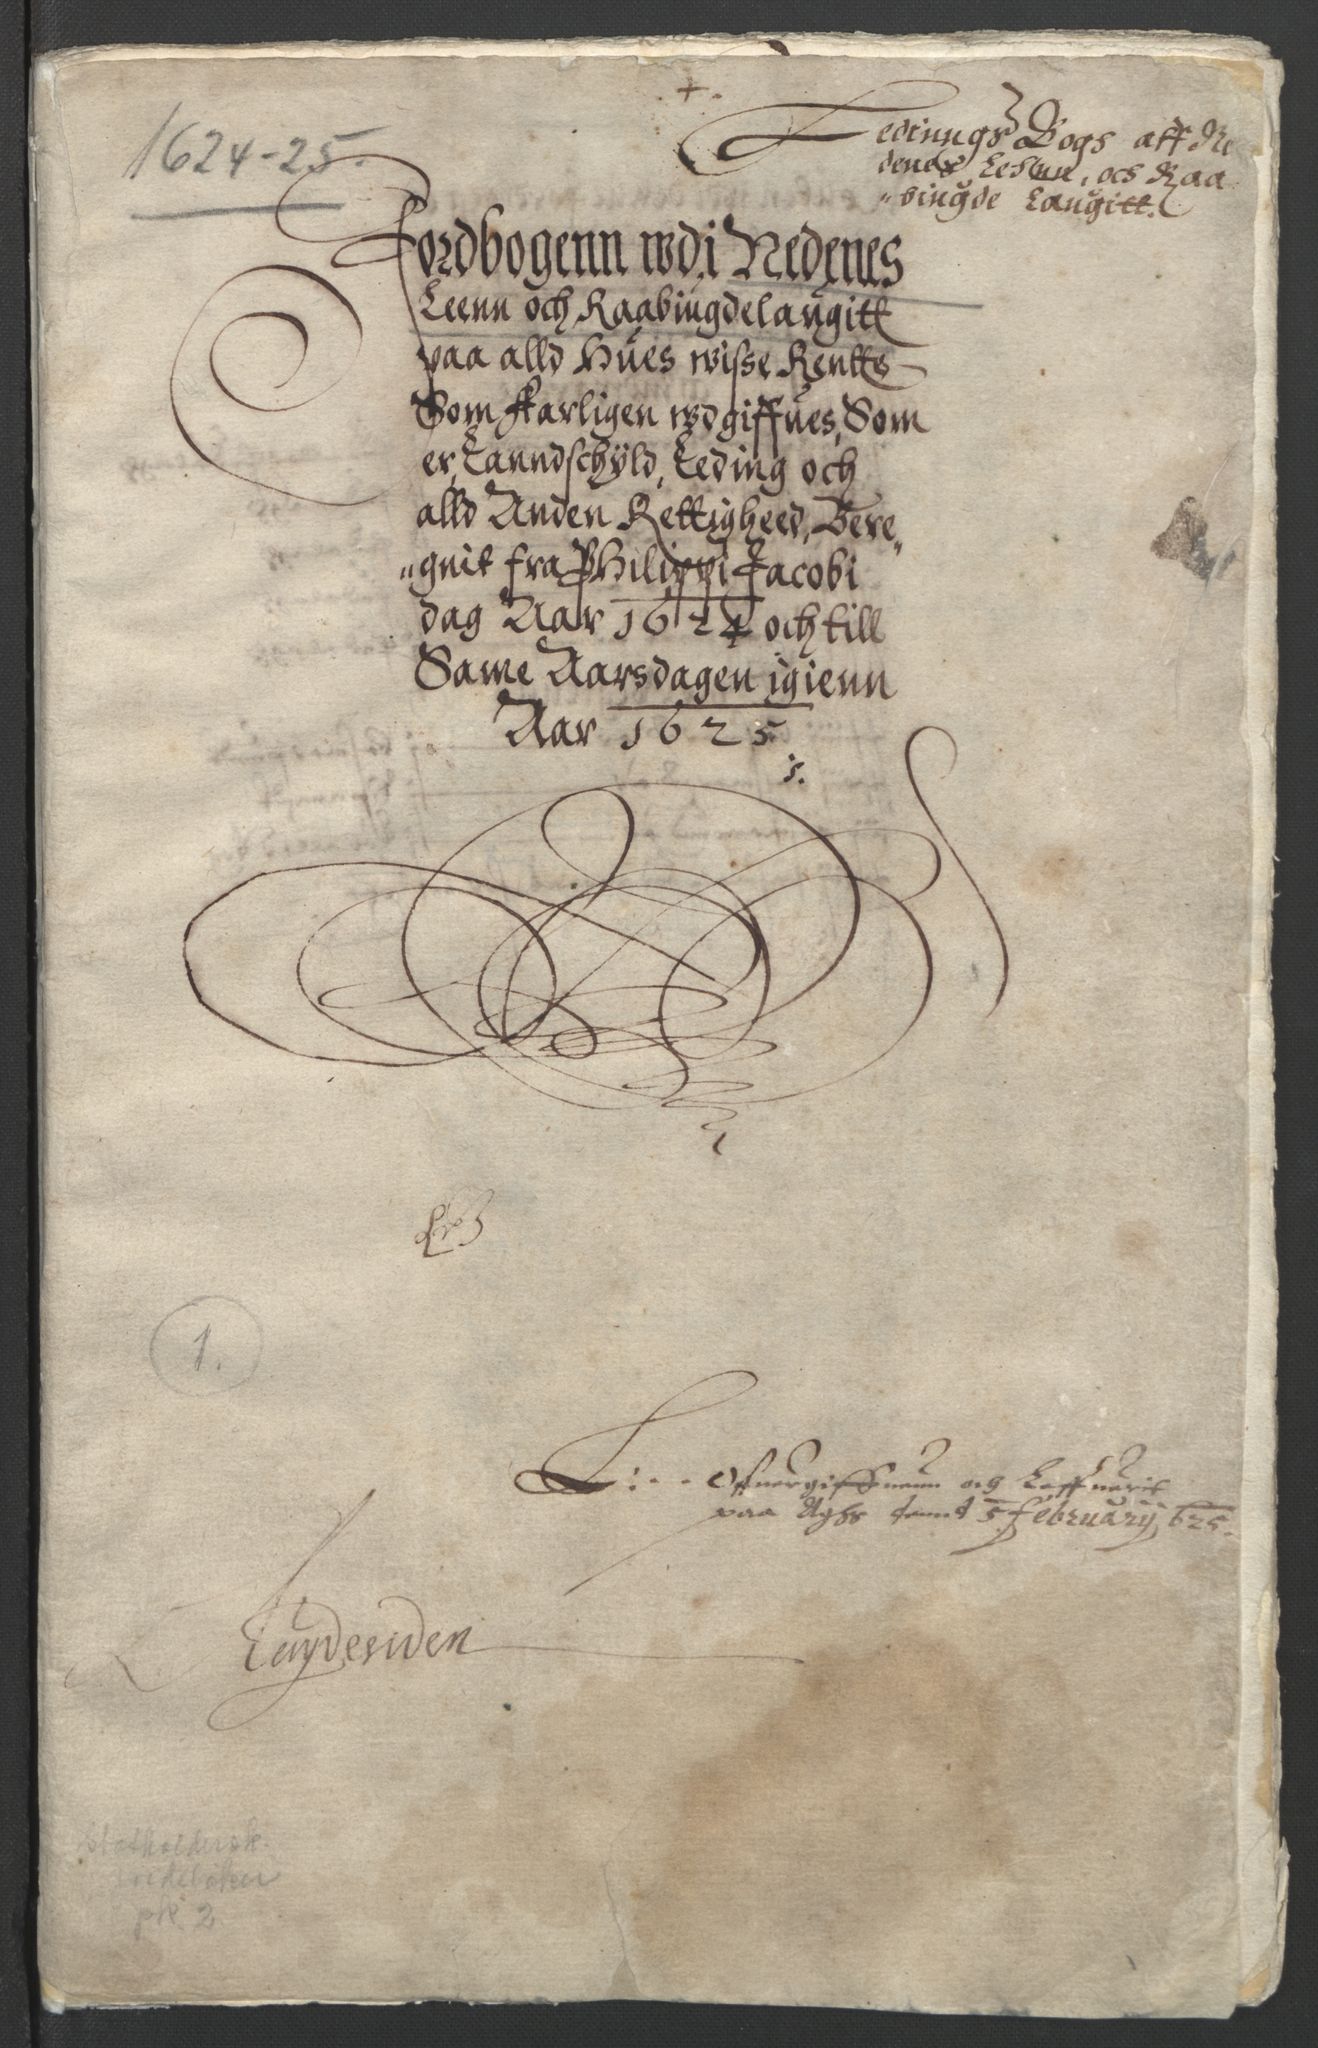 1624-25.
Ledinngs Bogs aff Ne
denes Lehnn, och Raa
"bingde Laugitt.
Jordbogenn wdi Nedenes
Leenn och Raabingdelaugitt
paa alld Hues wisse Rentte
Som Aarligen wdgiffues, Som
er, Lanndschÿld, Leding och
alld Anden Rettigheed, Bere"
"gnit fra PHilippi Jacobi
dag Aar 1624 och till
Same Aarsdagen igienn
Aar 1625
1.
Offuergiffuenn og Leffuerit
paa Aghs 5 February, 625.
Statholdersk.
jordebøker
pk. 2